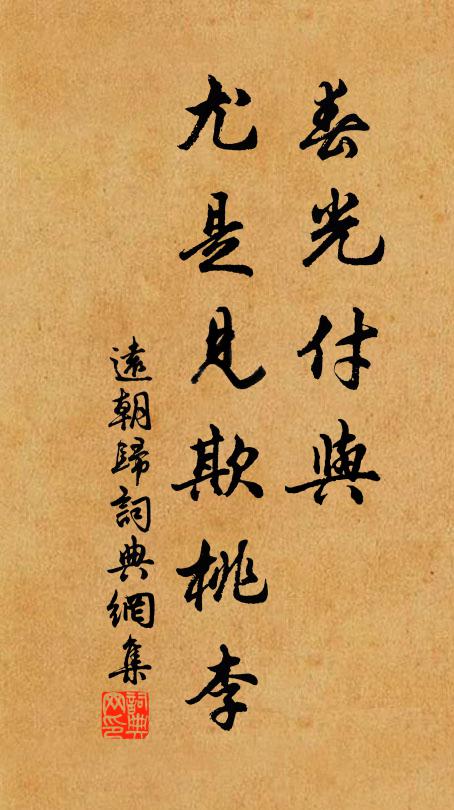 春光付與
尤是見欺桃李
遠朝歸詞典網集
詞典網印